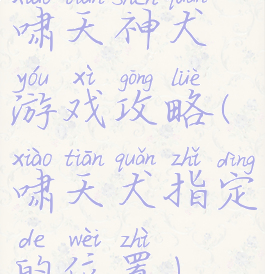 xiào tiān shén quǎn
啸天神犬
yóu xì gōng lüè
游戏攻略(
xiào tiān quǎn zhǐ dìng
啸天犬指定
de wèi zhì
的位置)